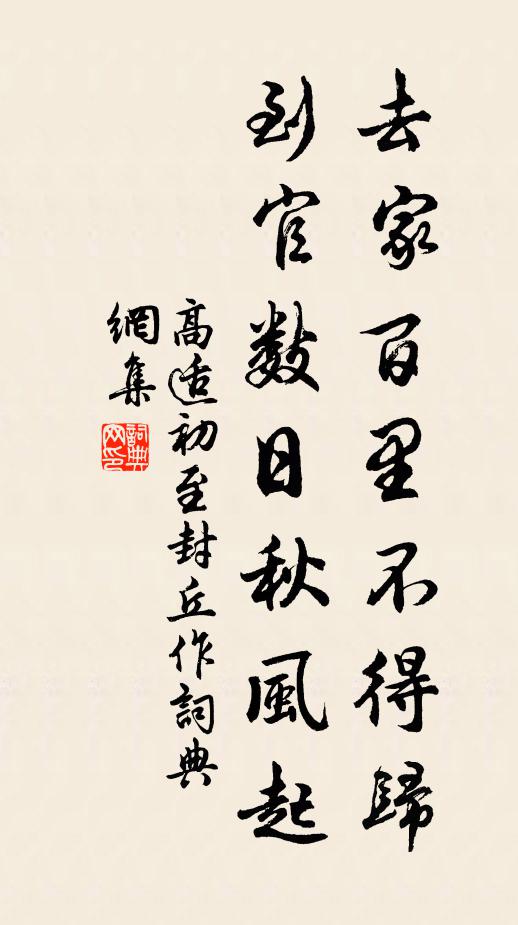 去家百里不得歸
到官数日秋風起
高适初至封丘作詞典
網集
詞典
网印